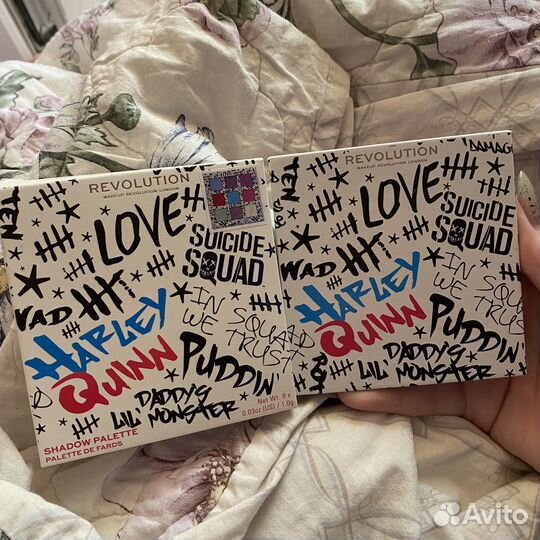 REVOLUTION
MAKEUP REVOLUTION LONDON
TEN
LOVE
SUICIDE
SQUAD
WAD
IN
WE
SQUAD
TRUST
HARLEY
QUINN
PUDDIN'
DADDY'S
LIL' MONSTER
SHADOW PALETTE
PALETTE DE FARDS
Net Wt. 9 x
0.03oz (US) / 1.0g
REVOLUTION
MAKEUP REVOLUTION LONDON
DAMAG
TEN
LOVE
SUICIDE
SQUAD
WAD
IN
WE
SQUAD
TRUST
HARLEY
QUINN
PUDDIN
DADDY'S
LIL' MONSTER
Avito